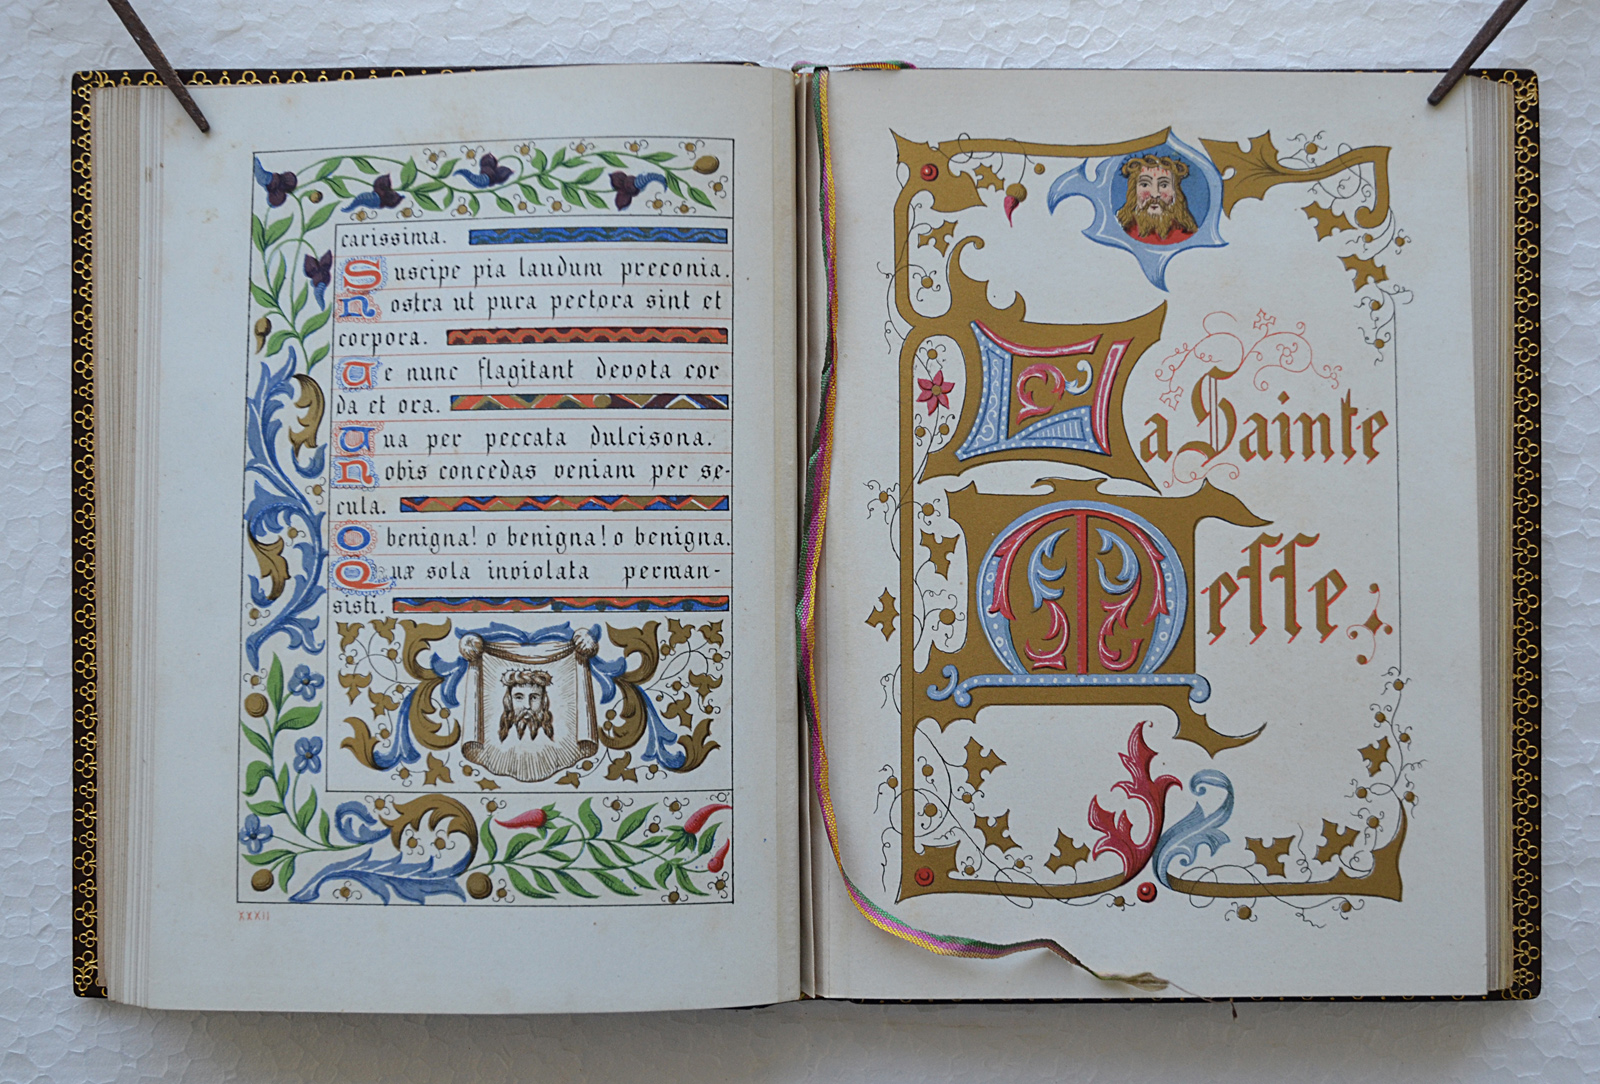 carissima.
Suscipe pia laudum preconia.
Nostra ut pura pectora sint et
corpora.
Te nunc flagitant devota cor
da et ora.
Tua per peccata dulcisona.
Nobis concedas veniam per se-
cula.
O benigna! o benigna! o benigna.
Quæ sola inviolata perman-
sisti.
XXXII
La Sainte
Messe